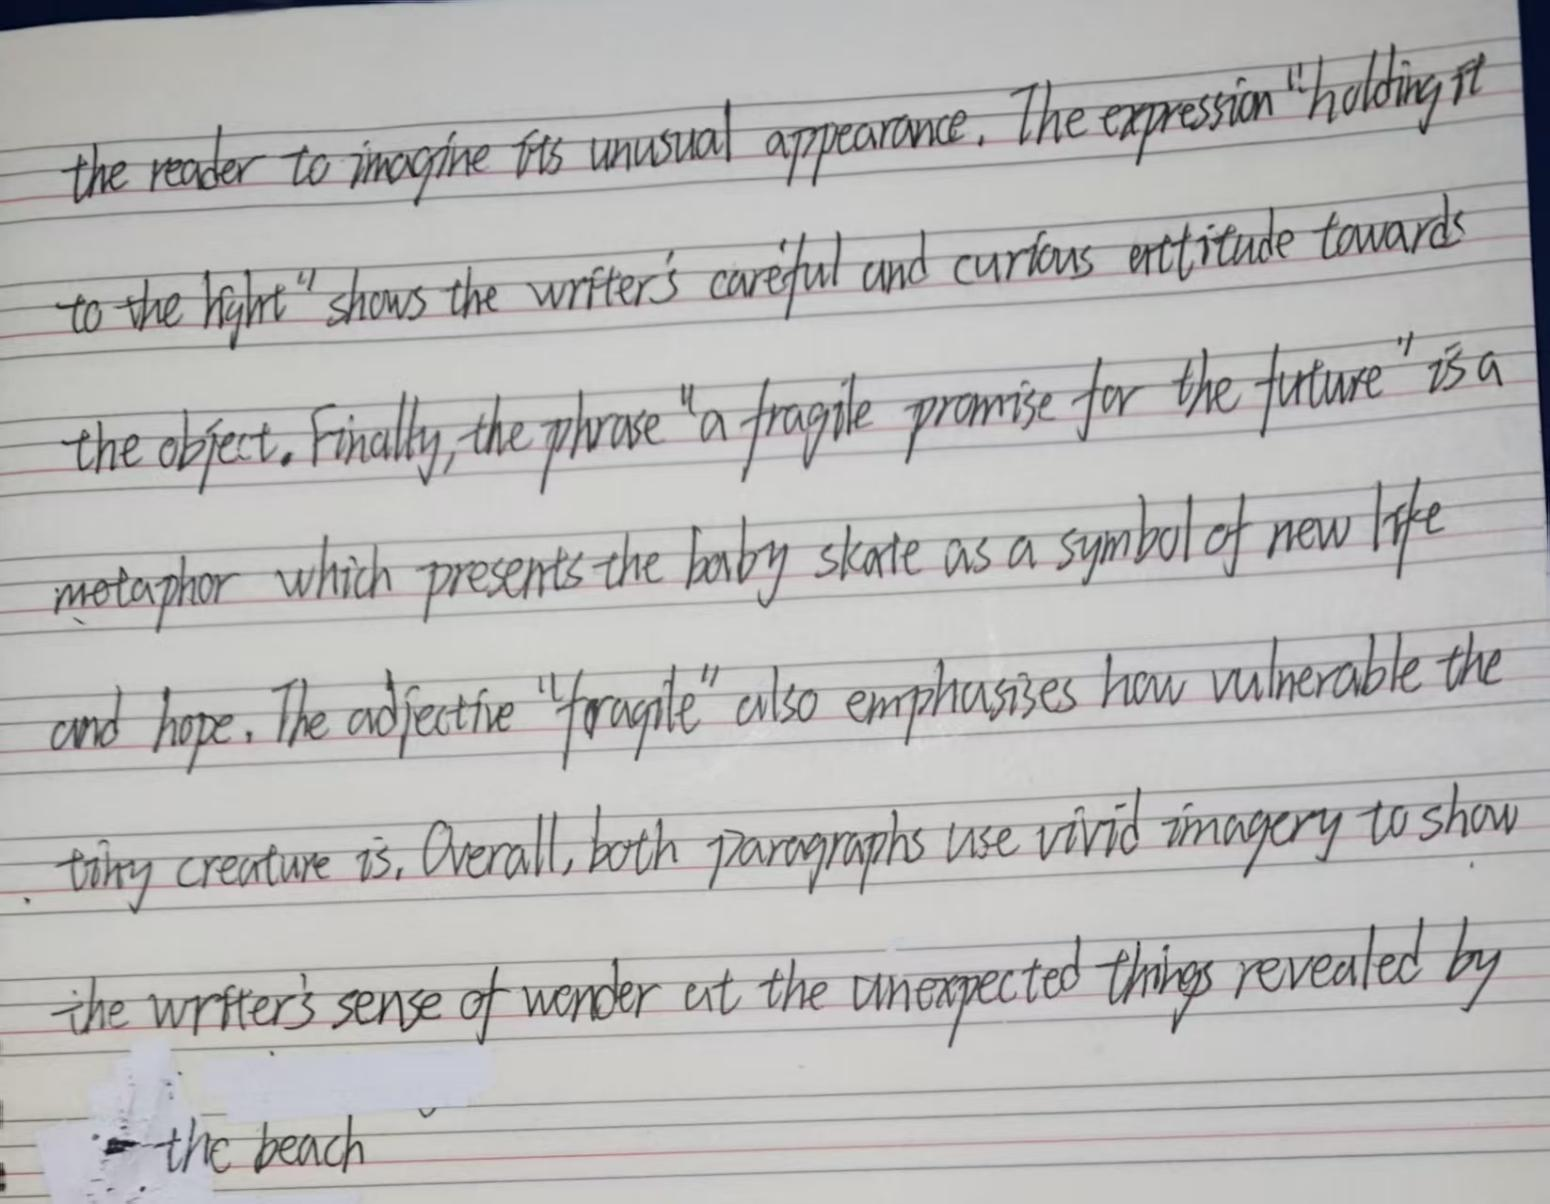 the reader to imagine its unusual appearance. The expression "holding it
to the light" shows the writer's careful and curious attitude towards
the object. Finally, the phrase "a fragile promise for the future" is a
metaphor which presents the baby skate as a symbol of new life
and hope. The adjective "fragile" also emphasises how vulnerable the
tiny creature is. Overall, both paragraphs use vivid imagery to show
the writer's sense of wonder at the unexpected things revealed by
the beach